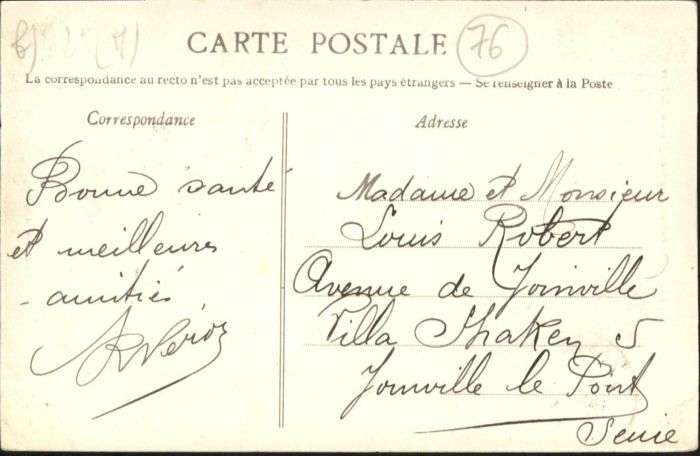 CARTE POSTALE
76
La correspondance au recto n'est pas acceptée par tous les pays étrangers — Se renseigner à la Poste
Correspondance
Bonne santé
et meilleures
amitiés
Adresse
Madame et Monsieur
Louis Robert
Avenue de Joinville
Villa Shakey 5
Joinville le Pont
Seine